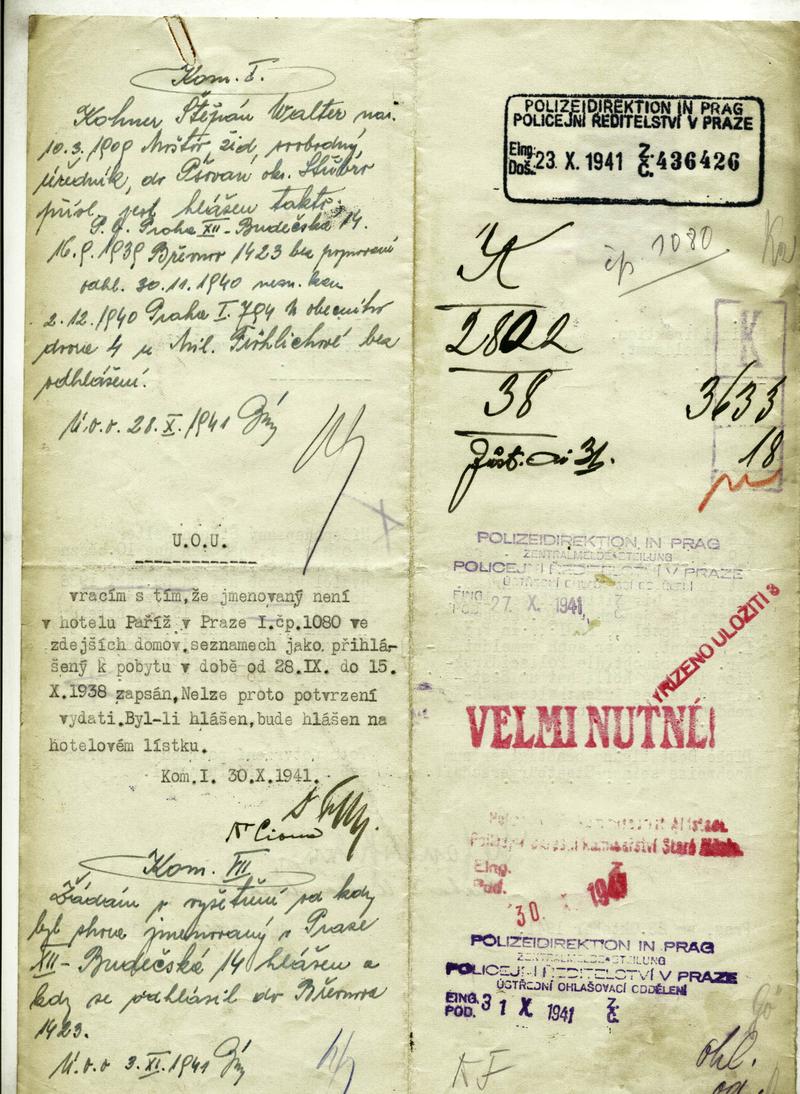 Kom. I.
Kohner Štěpán Walter nar.
10.3.1909 žid, svobodný,
úředník, do okr.
přísl. jest hlášen takto:
Praha XII - Budečská 14.
16.9.1939 Břevnov 1423 bez
odhl. 30.11.1940 kam
2.12.1940 Praha I. 794 U obecního
dvora 4 u Mil. bez
odhlášení.
Ú.o.o. 28.X.1941
U.O.U.
vracím s tím,že jmenovaný není
v hotelu Paříž v Praze I.čp.1080 ve
zdejších domov.seznamech jako přihlá-
šený k pobytu v době od 28.IX. do 15.
X.1938 zapsán,Nelze proto potvrzení
vydati.Byl-li hlášen,bude hlášen na
hotelovém lístku.
Kom.I. 30.X.1941.
Kom. VII
Žádám o vyšetření od kdy
byl shora jmenovaný v Praze
XII - Budečská 14 hlášen a
kdy se odhlásil do Břevnova
1423.
Ú.o.o 3.XI.1941
POLIZEIDIREKTION IN PRAG
POLICEJNÍ ŘEDITELSTVÍ V PRAZE
Eing.
Doš. 23. X. 1941 Z. Č. 436426
čp. 1080
K
2802
38
3633
18
POLIZEIDIREKTION IN PRAG
ZENTRALMELDEABTEILUNG
POLICEJNÍ ŘEDITELSTVÍ V PRAZE
ÚSTŘEDNÍ OHLAŠOVACÍ ODDĚLENÍ
EING.
POD. 27. X. 1941 Z. Č.
VYŘÍZENO ULOŽITI
VELMI NUTNÉ!
Policejní okresní komisařství Staré Město.
Eing.
Pod.
30. 1941
Z. Č.
POLIZEIDIREKTION IN PRAG
ZENTRALMELDEABTEILUNG
POLICEJNÍ ŘEDITELSTVÍ V PRAZE
ÚSTŘEDNÍ OHLAŠOVACÍ ODDĚLENÍ
EING.
POD. 31 X. 1941 Z. Č.
ohl.
od